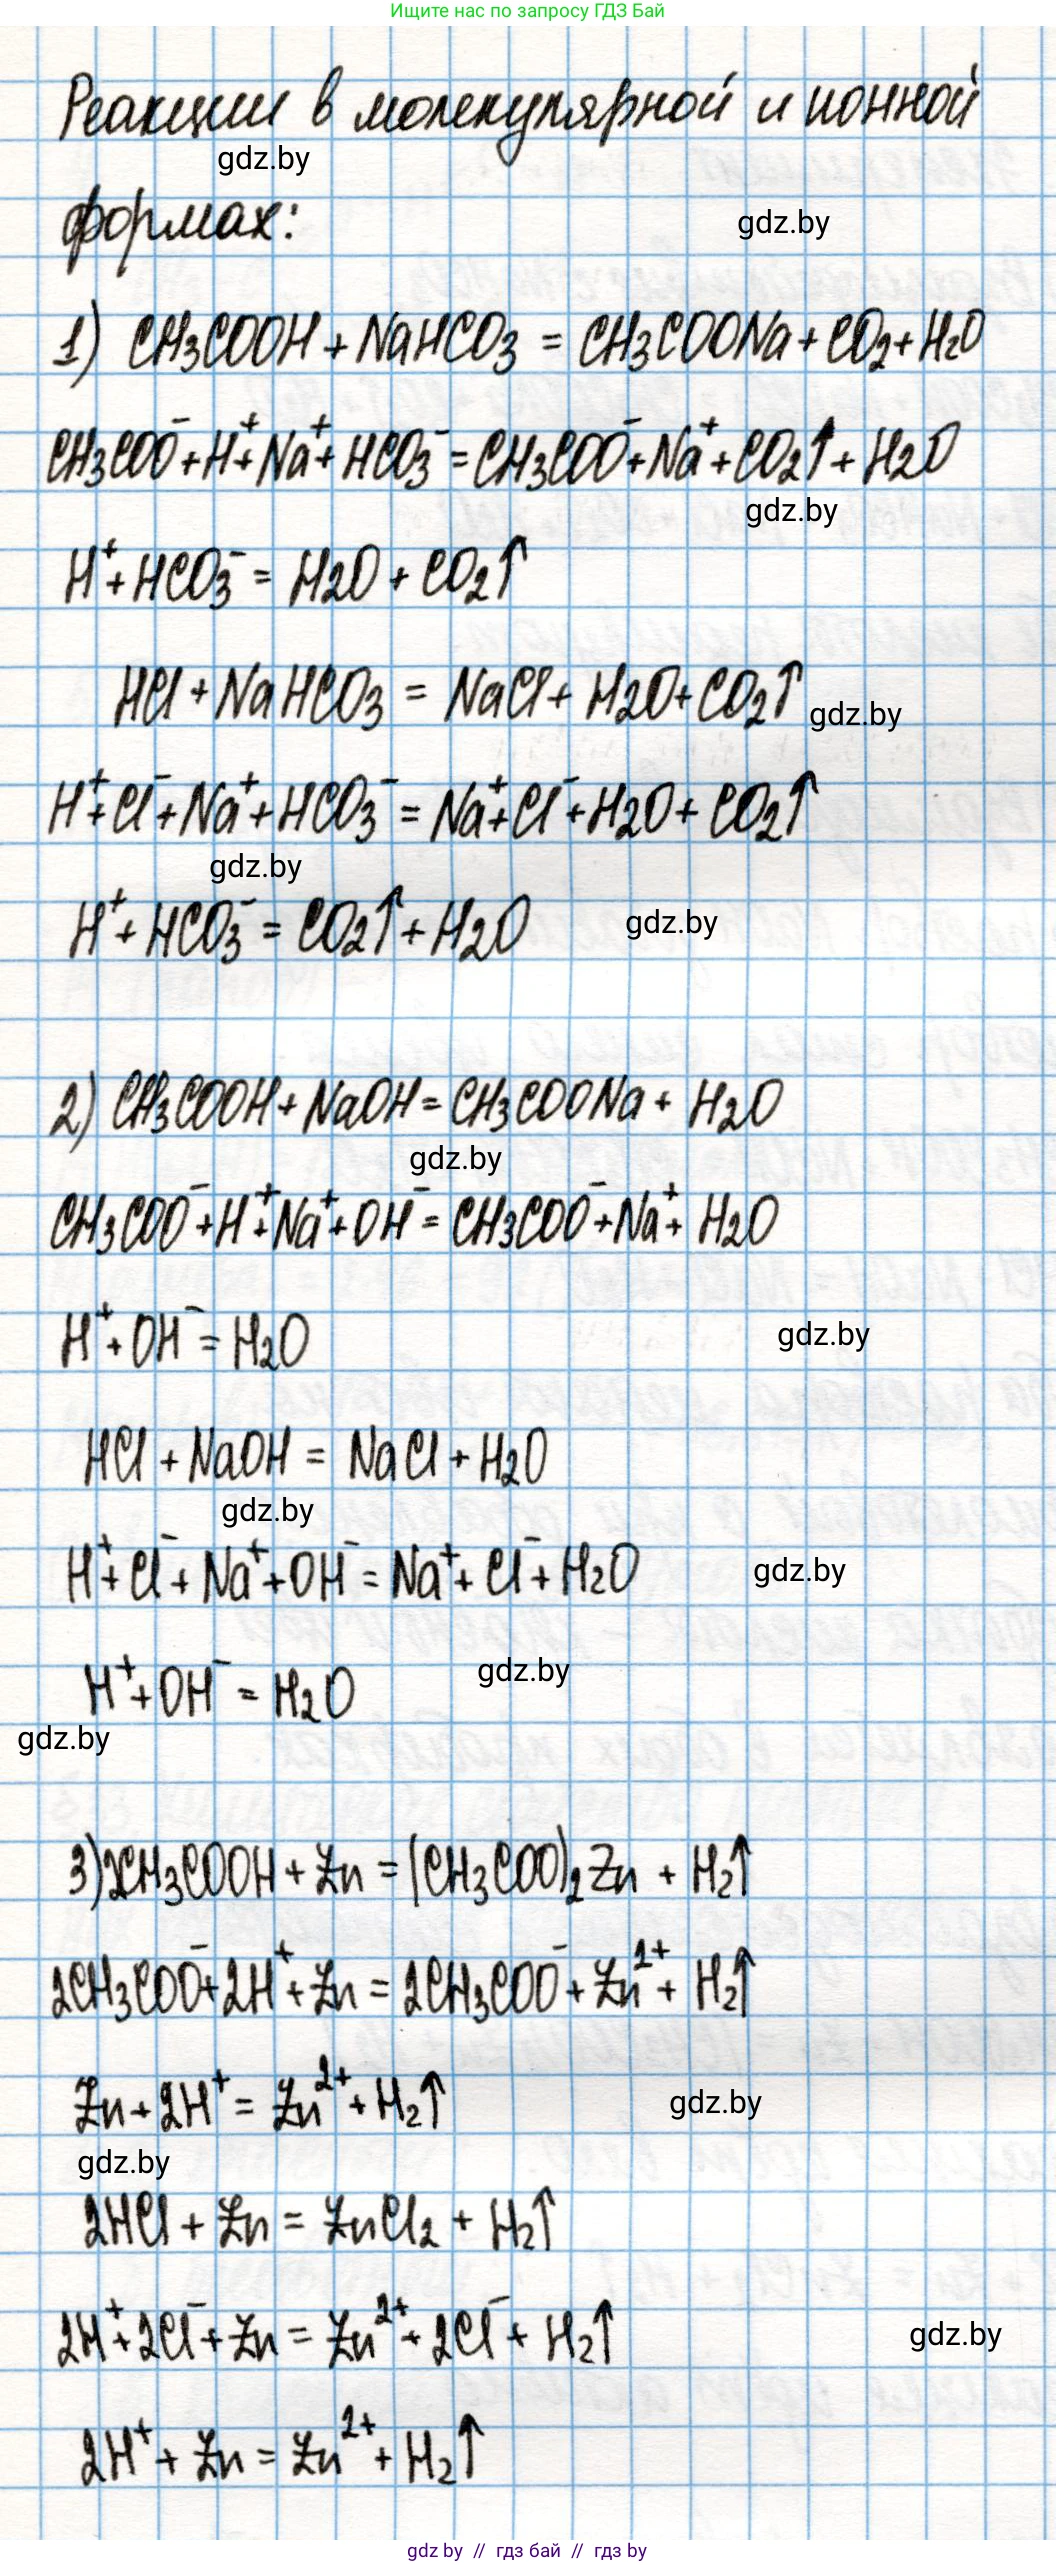 Ищите нас по запросу ГДЗ Бай
Реакции в молекулярной и ионной
gdz.by
формах:
gdz.by
1) CH₃COOH + NaHCO₃ = CH₃COONa + CO₂ + H₂O
CH₃COO⁻ + H⁺ + Na⁺ + HCO₃⁻ = CH₃COO⁻ + Na⁺ + CO₂↑ + H₂O
gdz.by
H⁺ + HCO₃⁻ = H₂O + CO₂↑
HCl + NaHCO₃ = NaCl + H₂O + CO₂↑
gdz.by
H⁺ + Cl⁻ + Na⁺ + HCO₃⁻ = Na⁺ + Cl⁻ + H₂O + CO₂↑
gdz.by
H⁺ + HCO₃⁻ = CO₂↑ + H₂O
gdz.by
2) CH₃COOH + NaOH = CH₃COONa + H₂O
gdz.by
CH₃COO⁻ + H⁺ + Na⁺ + OH⁻ = CH₃COO⁻ + Na⁺ + H₂O
H⁺ + OH⁻ = H₂O
gdz.by
HCl + NaOH = NaCl + H₂O
gdz.by
H⁺ + Cl⁻ + Na⁺ + OH⁻ = Na⁺ + Cl⁻ + H₂O
gdz.by
H⁺ + OH⁻ = H₂O
gdz.by
gdz.by
3) 2CH₃COOH + Zn = (CH₃COO)₂Zn + H₂↑
2CH₃COO⁻ + 2H⁺ + Zn = 2CH₃COO⁻ + Zn²⁺ + H₂↑
Zn + 2H⁺ = Zn²⁺ + H₂↑
gdz.by
gdz.by
2HCl + Zn = ZnCl₂ + H₂↑
2H⁺ + 2Cl⁻ + Zn = Zn²⁺ + 2Cl⁻ + H₂↑
gdz.by
2H⁺ + Zn = Zn²⁺ + H₂↑
gdz by // гдз бай // гдз by